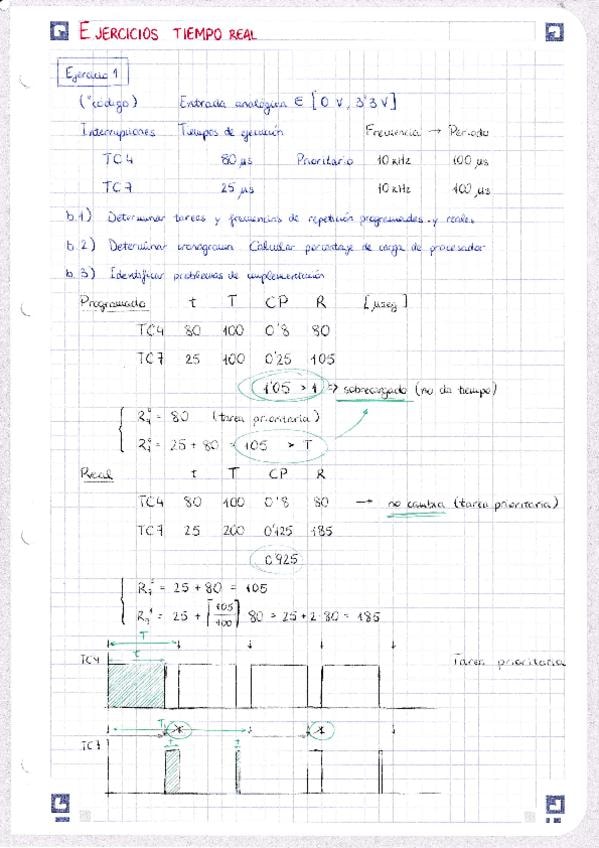 EJERCICIOS TIEMPO REAL
Ejercicio 1
(*código) Entrada analógica ∈ [0 V, 3'3 V]
Interrupciones Tiempos de ejecución Frecuencia → Periodo
TC4 80 µs Prioritario 10 kHz 100 µs
TC7 25 µs 10 kHz 100 µs
b.1) Determinar tareas y frecuencias de repetición programadas y reales
b.2) Determinar cronograma Calcular porcentaje de carga de procesador
b.3) Identificar problemas de implementación
Programado t T CP R [µseg]
TC4 80 100 0'8 80
TC7 25 100 0'25 105
1'05 > 1 ⇒ sobrecargado (no da tiempo)
= 80 (tarea prioritaria)
= 25 + 80 = 105 > T
Real t T CP R
TC4 80 100 0'8 80 → no cambia (tarea prioritaria)
TC7 25 200 0'125 185
0'925
= 25 + 80 = 105
= 25 + ⌈105/100⌉ 80 = 25 + 2·80 = 185
T
t
TC4 Tarea prioritaria
T
* *
t t
TC7